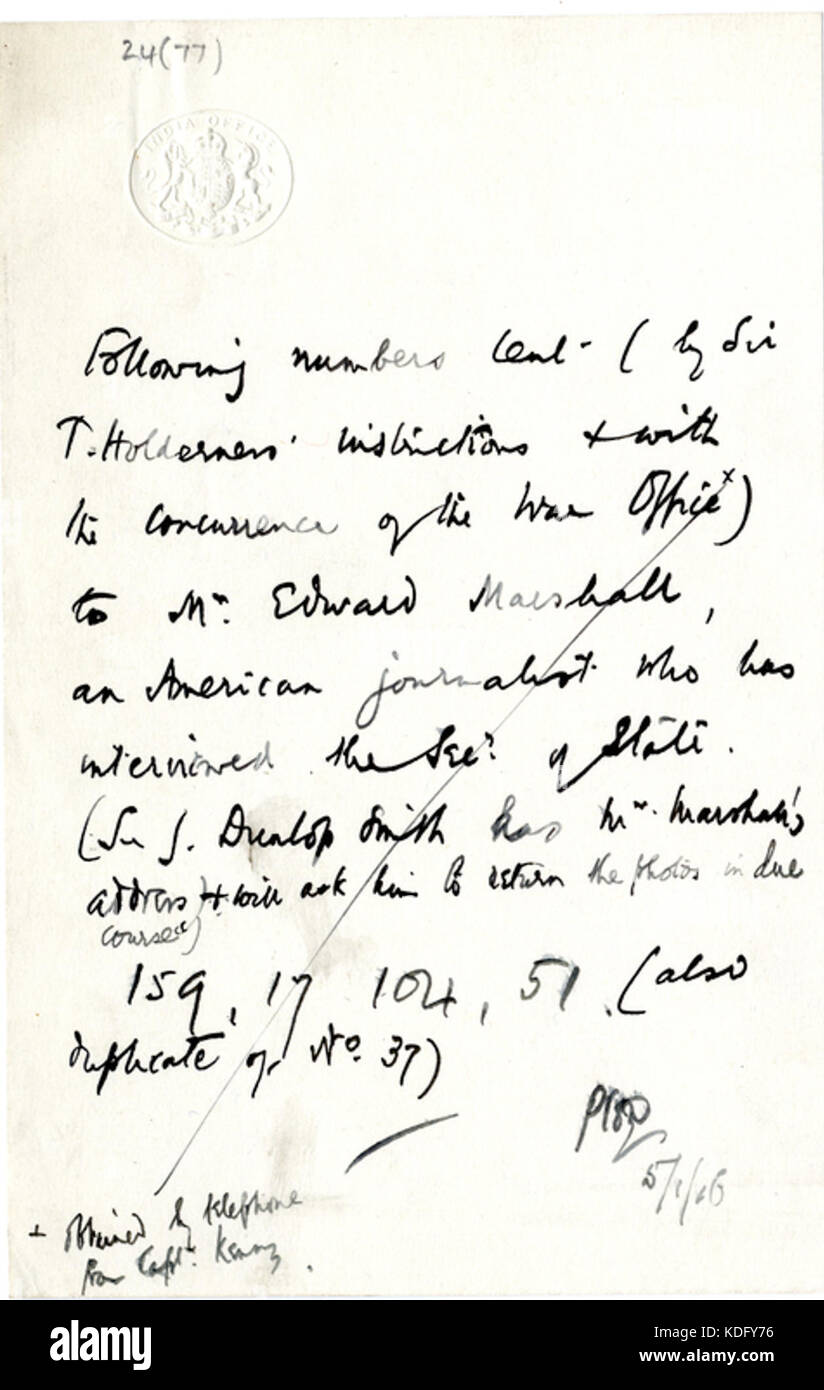 24(77)
INDIA OFFICE
Following numbers lent - (by Sir
T. Holderness' instructions + with
the concurrence of the War Office x)
to Mr. Edward Marshall,
an American journalist who has
interviewed the Secy of State.
(Sir J. Dunlop Smith has Mr. Marshall's
address + will ask him to return the photos in due
course)
159, 17 104, 51. (also
duplicate of No. 37)
5/1/16
+ obtained by telephone
from Capt.
alamy stock photo
KDFY76
www.alamy.com